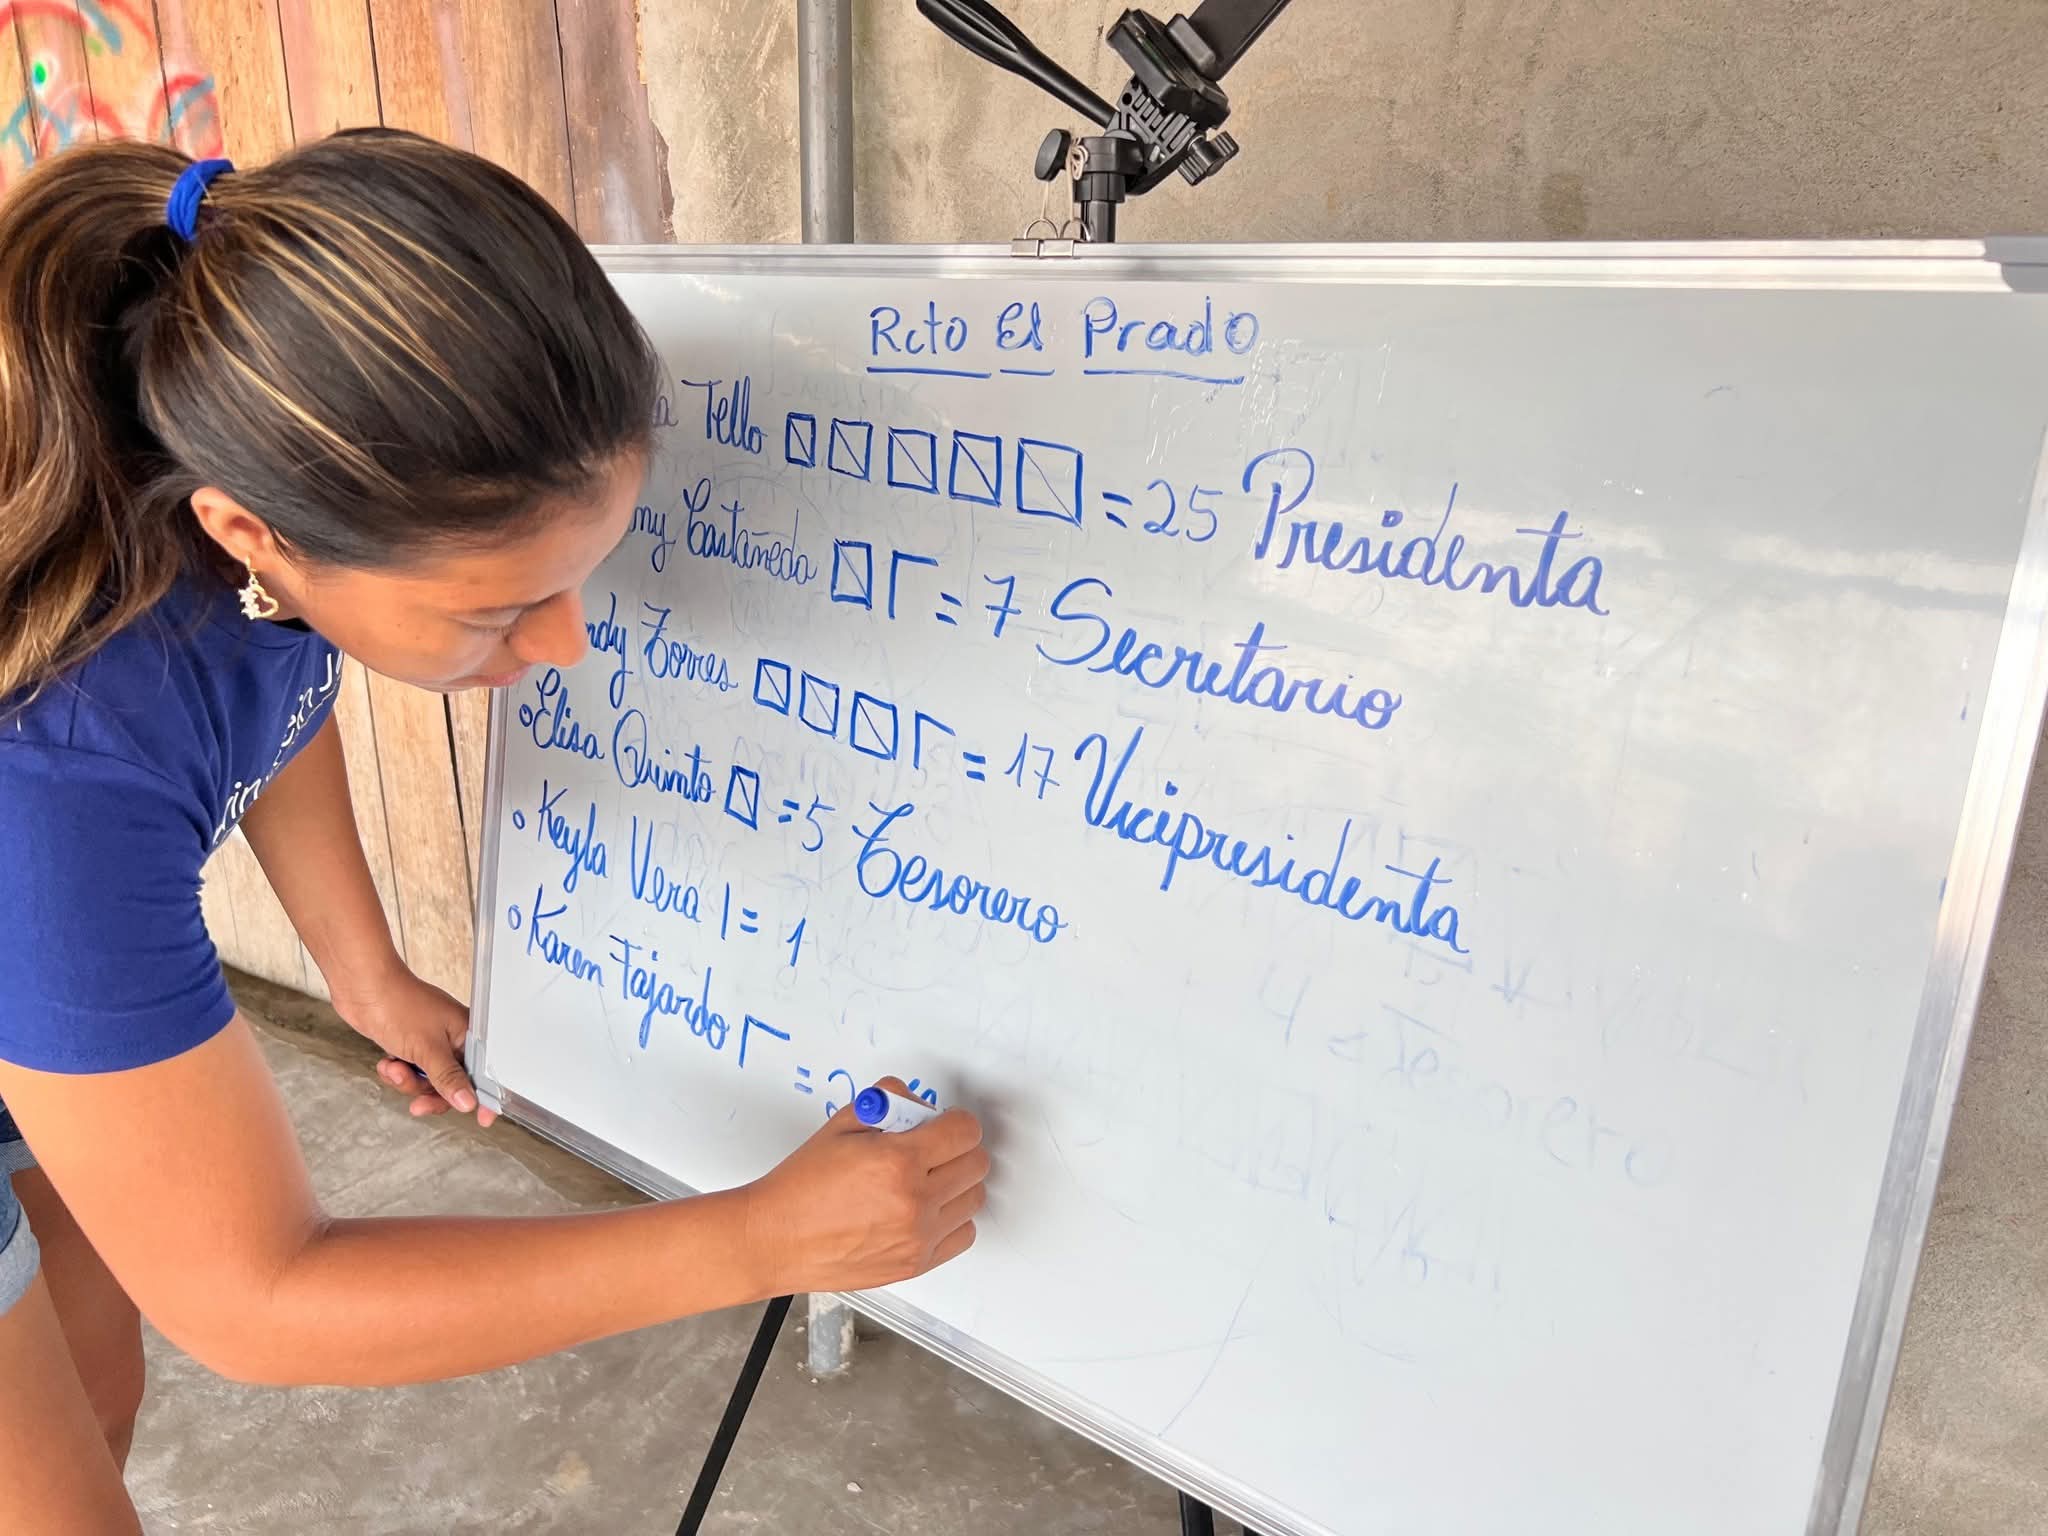 Rcto El Prado
Tello = 25 Presidenta
Castañeda = 7 Secretario
Torres = 17 Vicipresidenta
Elisa Quinto = 5 Tesorero
Keyla Vera = 1
Karen Fajardo = 2